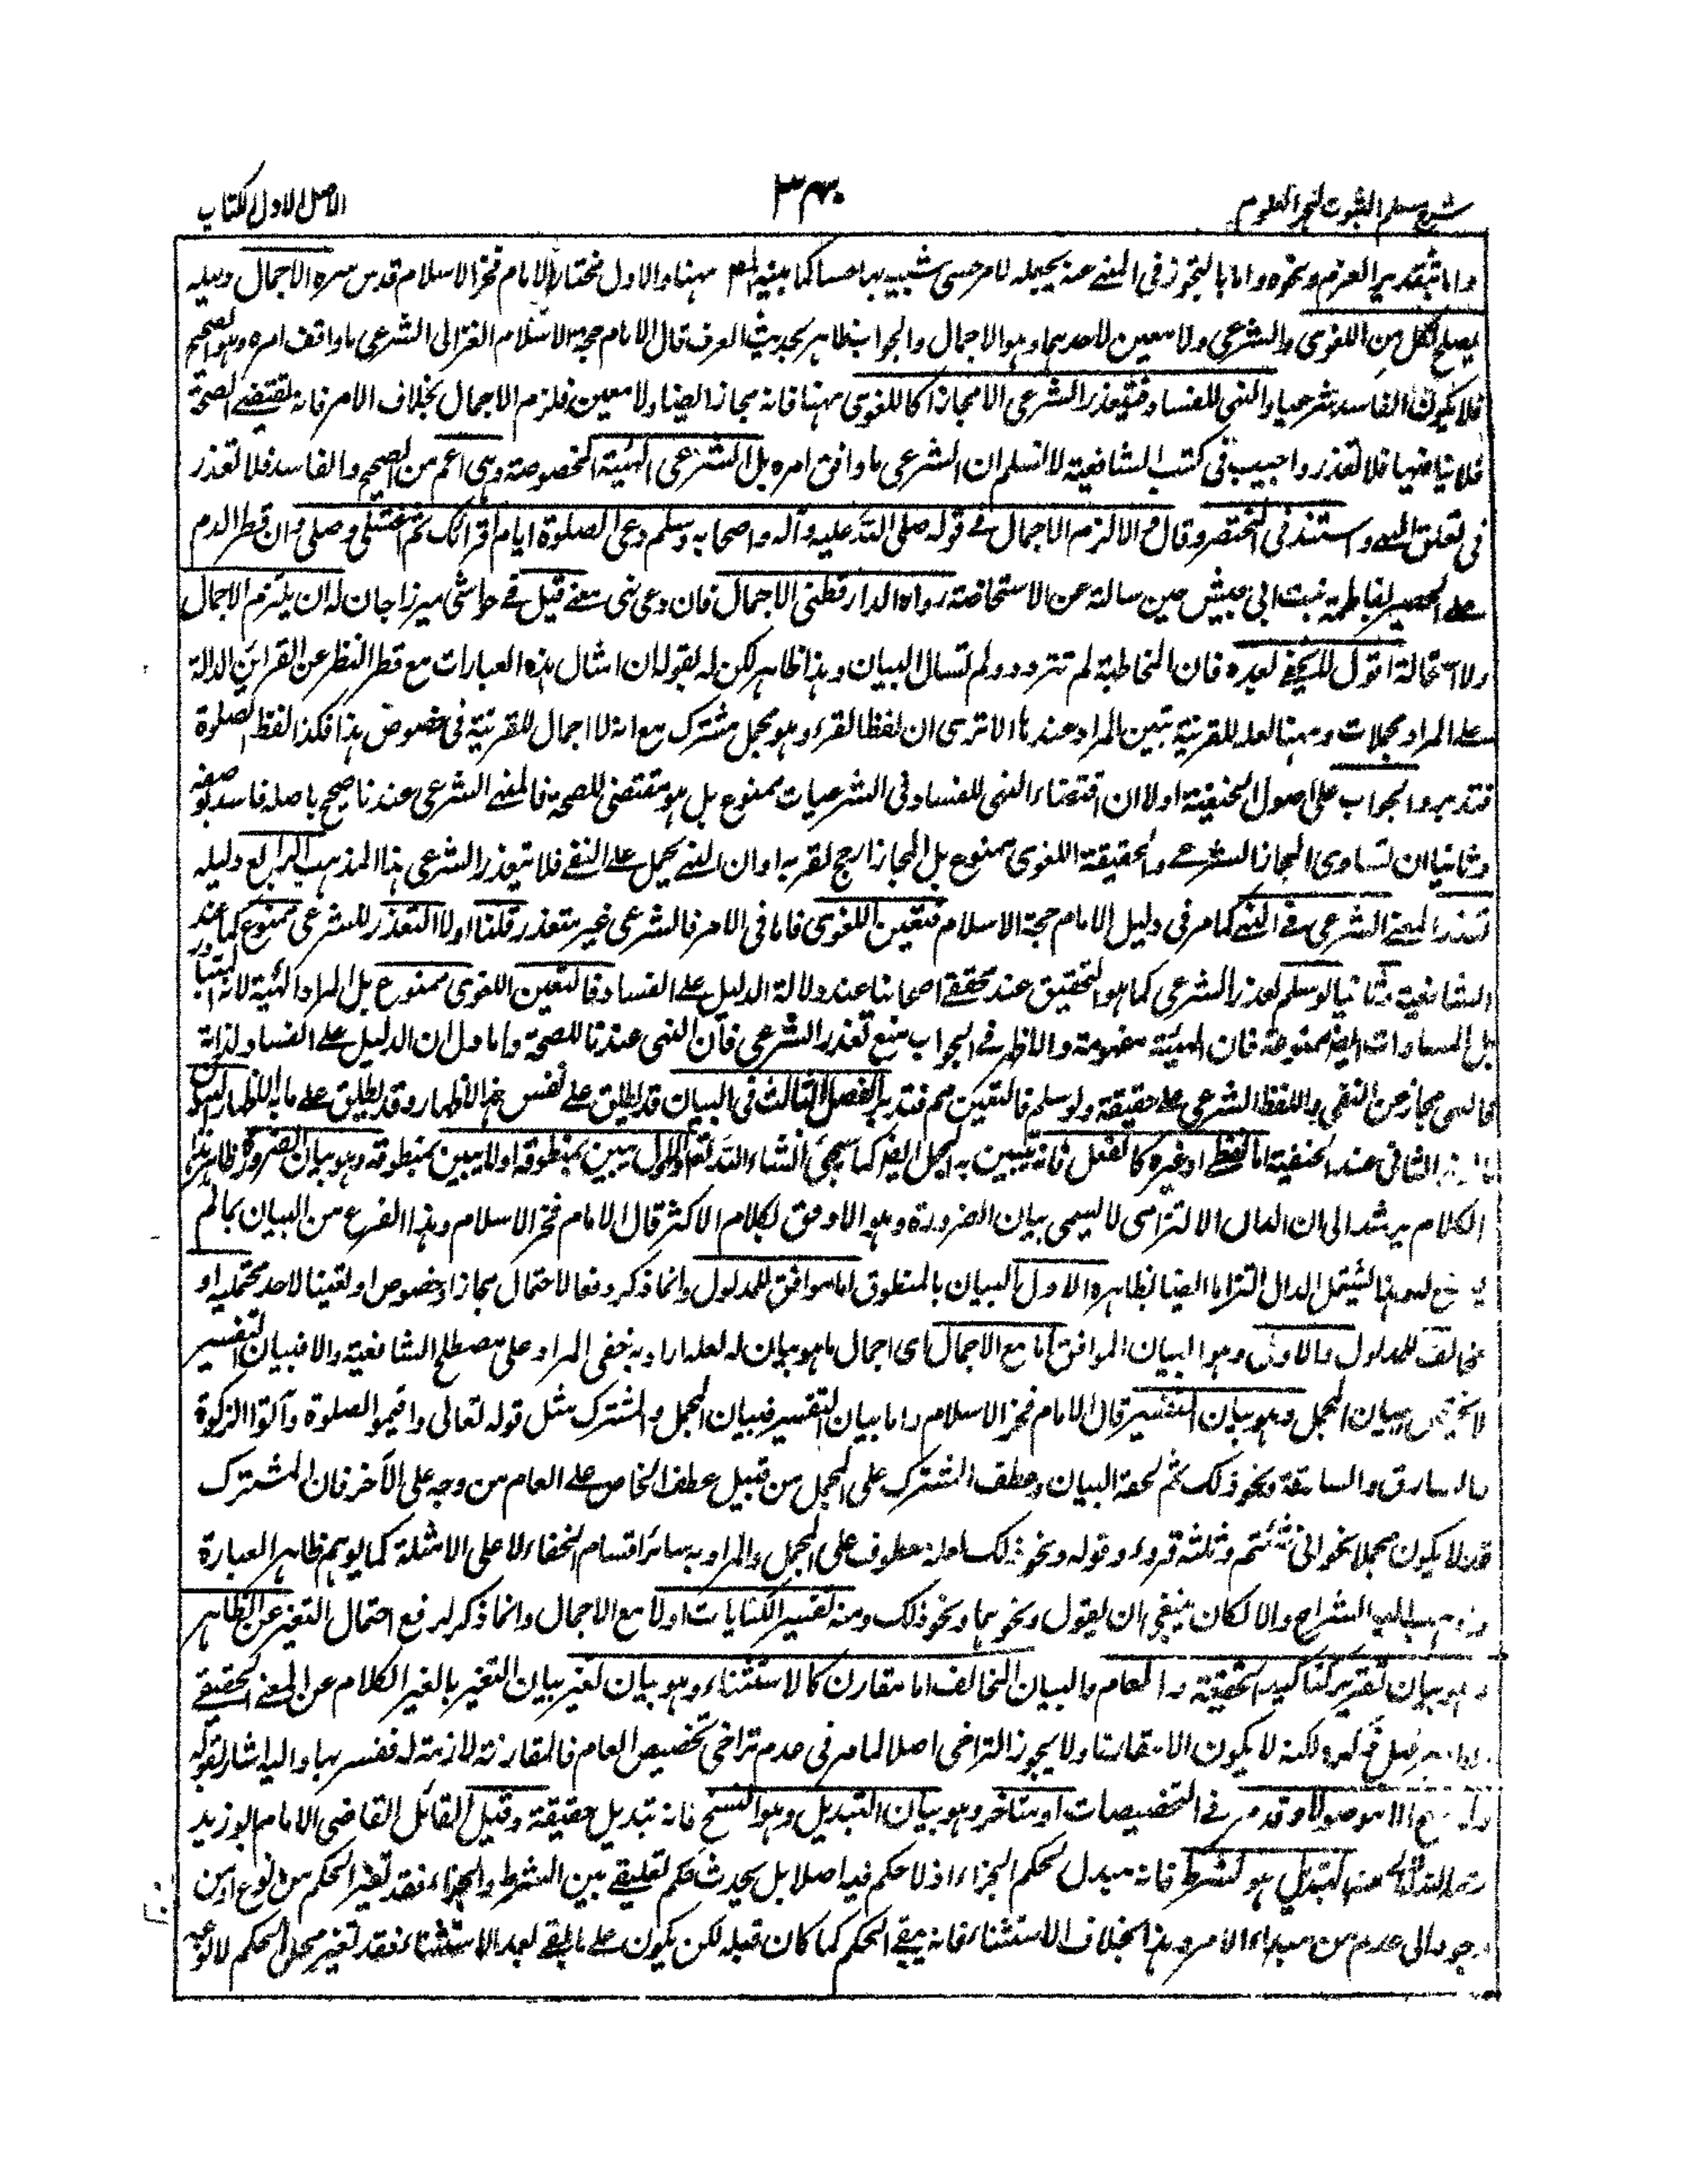 شرح مسلم الثبوت لبحر العلوم
٣٤٠
الاصل الاول الكتاب
واما بتقدير العزم ونحوه واما بالتجوز فى المنفى عنه بجعله لامر حسى شبيه بها حسا كما ههنا والاول مختار الامام فخر الاسلام قدس سره الاجمال دليله
يصلح لكل من اللغوى والشرعى ولا معين لاحدهما وهو الاجمال والجواب ظاهر بحديث العرف قال الامام حجة الاسلام الغزالى الشرعى ما وافق امره وهو الصحيح
فلا يكون الفاسد شرعيا والنهى للفساد فيتعذر الشرعى الا مجازا كاللغوى ههنا فانه مجاز ايضا ولا معين فلزم الاجمال بخلاف الامر فانه لمقتضى الصحة
فلا ينافيها فلا تعذر واجيب فى كتب الشافعية لا نسلم ان الشرعى ما وافق امره بل الشرعى الهيئة المخصوصة وهى اعم من الصحيح والفاسد فلا تعذر
فى تعلق النهى واستند فى المختصر وقال والا لزم الاجمال فى قوله صلى الله عليه وآله واصحابه وسلم دعى الصلوة ايام اقرائك ثم اغتسلى وصلى وان قطر الدم
على الحصير لفاطمة بنت ابى حبيش حين سالته عن الاستحاضة رواه الدارقطنى الاجمال فان دعى نهى معنى قيل فى حواشى ميرزا جان له ان يلتزم الاجمال
ولا استحالة اقول لا يخفى بعده فان المخاطبة لم تتردد ولم تسال البيان وهذا ظاهر لكن له يقول ان امثال هذه العبارات مع قطر النظر عن القراين الدالة
على المراد مجملات وههنا لعله للقرينة تبين المراد عندها الا ترى ان لفظ القرء وهو مجمل مشترك مع انه لا اجمال للقرينة فى خصوص هذا فكذا لفظ الصلوة
فتدبر والجواب على اصول الحنفية اولا ان اقتضاء النهى للفساد فى الشرعيات ممنوع بل هو مقتضى للصحة فالمنهى الشرعى عندنا صحيح باصله فاسد بوصفه
وثانيا ان تساوى المجاز الشرعى والحقيقة اللغوى ممنوع بل المجاز ارجح لقربه او ان النهى يحمل على النفى فلا يتعذر الشرعى هذا المذهب الرابع دليله
تعذر المعنى الشرعى فى النهى كما مر فى دليل الامام حجة الاسلام فتعين اللغوى فاما فى الامر فالشرعى غير متعذر قلنا اولا التعذر للشرعى ممنوع كما عند
الشافعية وثانيا لو سلم تعذر الشرعى كما هو التحقيق عند محققى اصحابنا عند دلالة الدليل على الفساد فالتعين اللغوى ممنوع بل المراد الهيئة لانه المتبادر
بل المساوات ايضا ممنوعة فان الهيئة مفهومة والاظهر فى الجواب منع تعذر الشرعى فان النهى عندنا للصحة واما دل ان الدليل على الفساد لذاته
فالنهى مجاز عن النفى واللفظ الشرعى على حقيقته ولو سلم فالتعين مم فتدبر الفصل الثالث فى البيان قد يطلق على نفس هذا الاظهار وقد يطلق على ما به الاظهار
الثانى عند الحنفية اما لفظ او غيره كالفعل فانه يتبين به المجمل ايضا كما سيجئ انشاء الله تعالى والاول يبين بمنطوقه او لا يبين بمنطوقه وهو بيان الضرورة ظاهر هذا
الكلام يرشد الى ان الدال الالتزامى لا يسمى بيان الضرورة وهو الاوفق لكلام الاكثر قال الامام فخر الاسلام وهذا الفرع من البيان بما لم
يوضع له هذا يشتمل الدال التزاما ايضا بظاهره الاول البيان بالمنطوق اما موافق للمدلول وانما ذكر دفعا لاحتمال مجاز او خصوص او تعينا لاحد محتمليه او
مخالف للمدلول والاول وهو البيان الموافق اما مع الاجمال اى اجمال ما هو بيان له لعله اراد به خفى المراد على مصطلح الشافعية والا فبيان التفسير
لا يختص ببيان المجمل وهو بيان التفسير قال الامام فخر الاسلام واما بيان التفسير فبيان المجمل والمشترك مثل قوله تعالى واقيموا الصلوة وآتوا الزكوة
والسارق والسارقة ونحو ذلك ثم لحقه البيان وعطف المشترك على المجمل من قبيل عطف الخاص على العام من وجه على الآخر فان المشترك
قد لا يكون مجملا نحو انى شئتم وثلثة قروء وقوله ونحو ذلك لعله معطوف على المجمل والمراد به سائر اقسام الخفاء لا على الامثلة كما يوهم ظاهر العبارة
وذهب اليه الشراح والا لكان ينبغى ان يقول ونحوهما ونحو ذلك ومنه تفسير الكنايات اولا مع الاجمال وانما ذكر لرفع احتمال التغير عن الظاهر
وهو بيان تقرير كتاكيد الحقيقة والعام والبيان المخالف اما مقارن كالاستثناء وهو بيان تغير بيان التغير بالغير الكلام عن المعنى الحقيقى
لكنه لا يكون الا مقارنا ولا يجوز التراخى اصلا لما مر فى عدم تراخى تخصيص العام فالمقارنة لازمة له ففسر بها واليه اشار بقوله
الا موصولا وقد مر فى التخصيصات او متاخر وهو بيان التبديل وهو النسخ فانه تبديل حقيقة وقيل القائل القاضى الامام ابو زيد
رحمه الله التبديل هو الشرط فانه مبدل لحكم الجزاء اذ لا حكم فيه اصلا بل يحدث حكم تعليقى بين الشرط والجزاء فقد تغير الحكم من نوع او من
وجود الى عدم من مبداء الامر وهذا بخلاف الاستثناء فانه يبقى الحكم كما كان قبله لكن يكون على ما بقى بعد الاستثناء فقد تغير محل الحكم لا نوعه